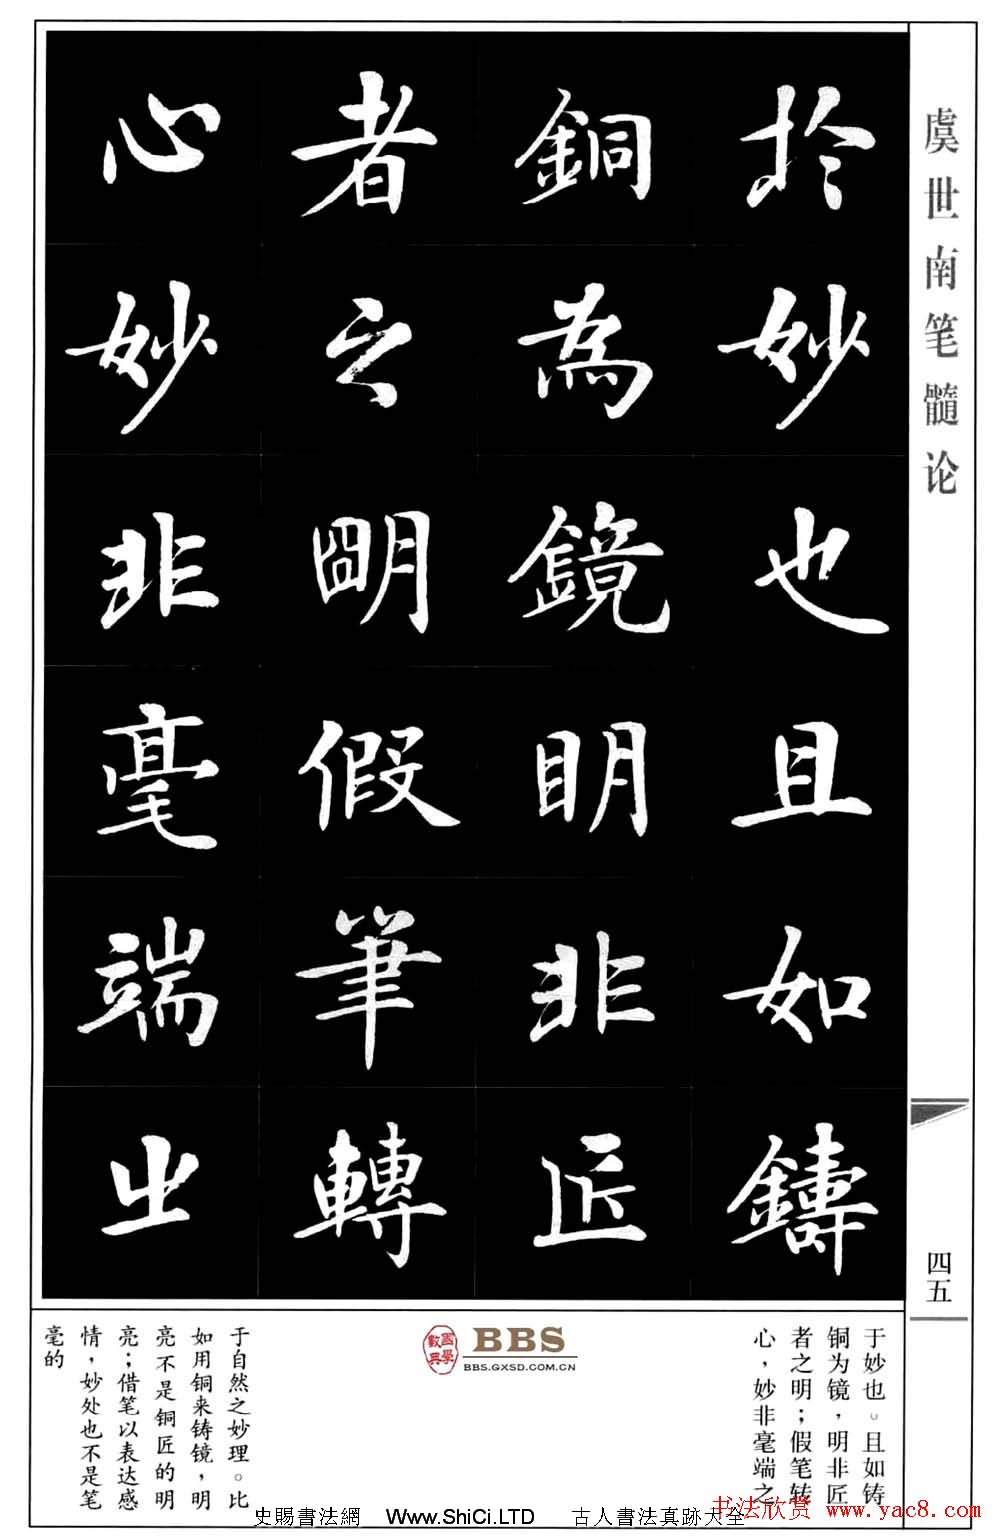 虞世南笔髓论
於妙也且如鑄
銅為鏡明非匠
者之明假筆轉
心妙非毫端之
四五
于妙也。且如铸
铜为镜，明非匠
者之明；假笔转
心，妙非毫端之
于自然之妙理。比
如用铜来铸镜，明
亮不是铜匠的明
亮；借笔以表达感
情，妙处也不是笔
毫的
國學數典
BBS
BBS.GXSD.COM.CN
书法欣赏 www.yac8.com
史賜書法網 Www.ShiCi.LTD 古人書法真跡大全